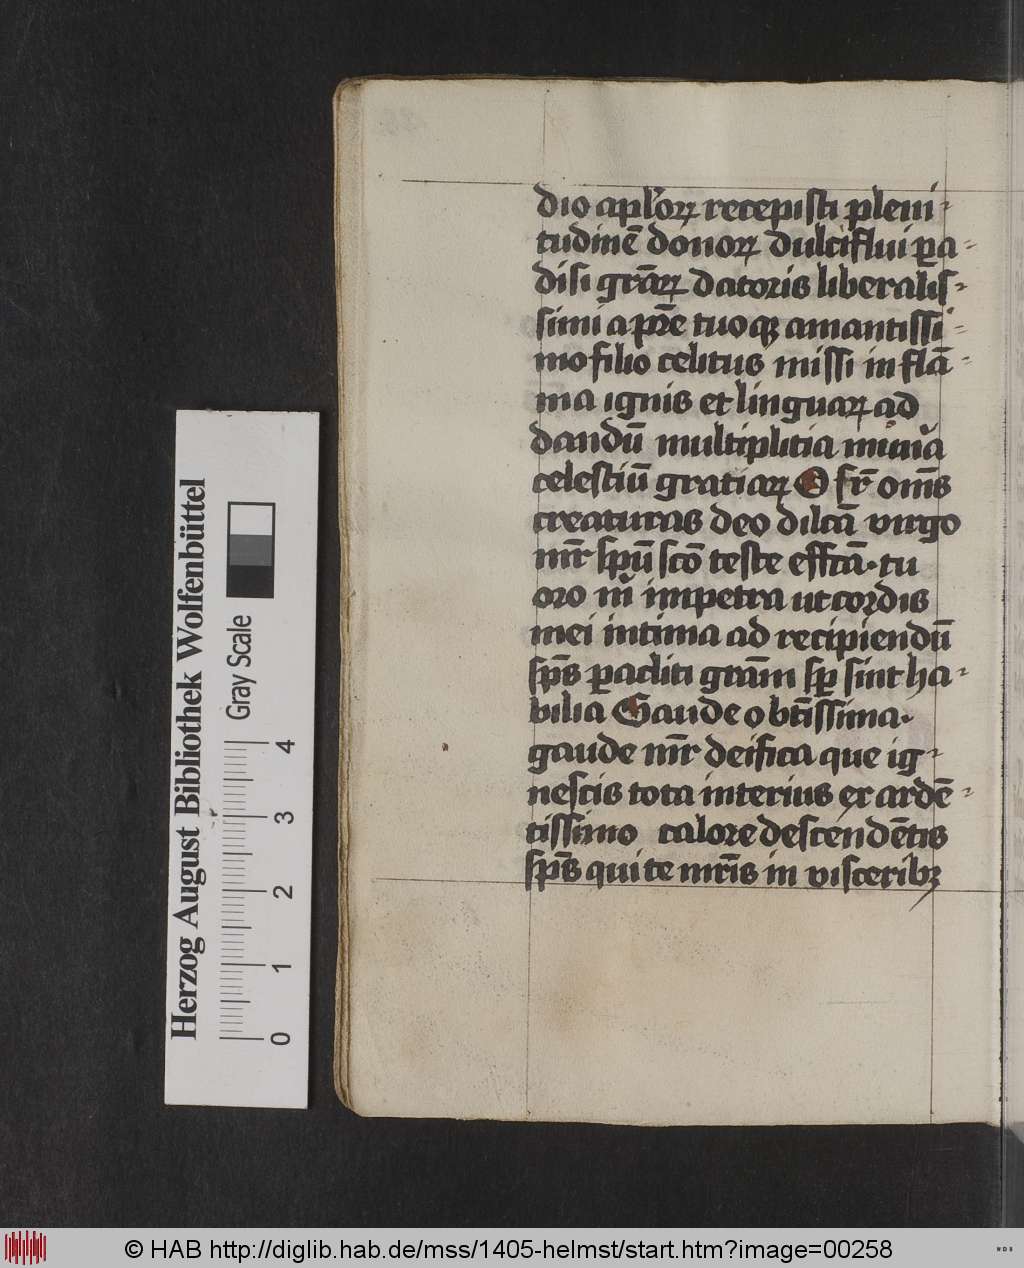 dio aplꝛoꝝ recepisti pleni-
tudinē donoꝝ dulciflui ꝑa-
disi grāꝝ datoris liberalis-
simi a pr̄e tuoqꝫ amantissi-
mo filio celitus missi in flā-
ma ignis et linguaꝝ ad
dandū multiplitia mūīa
celestiū gratiaꝝ O sr̄ om̄s
creaturas deo dilcā virgo
mr̄ spū scō teste effcā· tu
oro m̄ impetra ut cordis
mei intima ad recipiendū
sp̄s ꝑacliti grām sꝑ sint ha-
bilia Gaude o btīssima·
gaude mr̄ deifica que ig-
nescis tota interius ex ardē-
tissimo calore descendētis
sp̄s qui te mr̄is in visceribꝫ
Herzog August Bibliothek Wolfenbüttel
Gray Scale
0 1 2 3 4
© HAB http://diglib.hab.de/mss/1405-helmst/start.htm?image=00258